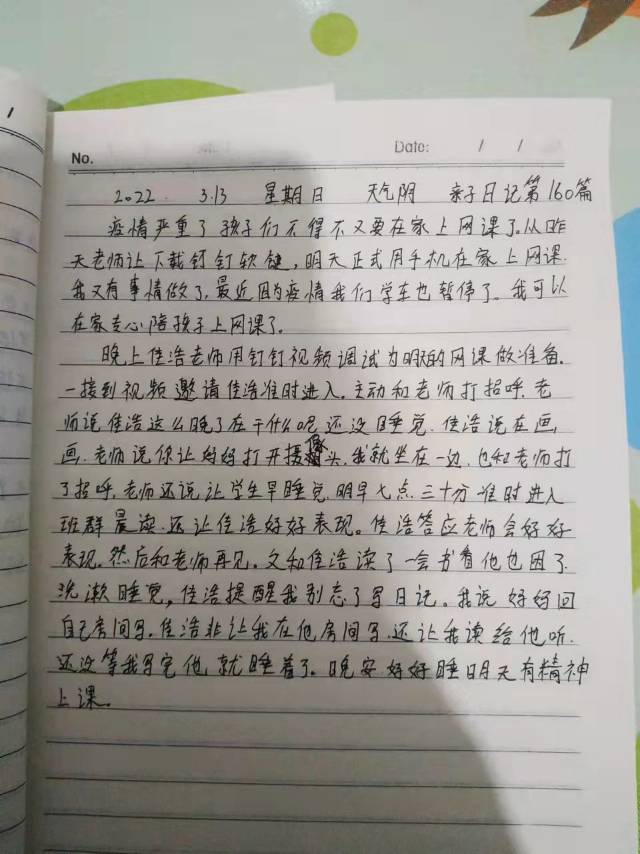 No.
Date: / /
2022 3.13 星期日 天气阴 亲子日记第160篇
疫情严重了孩子们不得不又要在家上网课了。从昨
天老师让下载钉钉软键，明天正式用手机在家上网课.
我又有事情做了，最近因为疫情我们学车也暂停了。我可以
在家专心陪孩子上网课了。
晚上佳浩老师用钉钉视频调试为明的网课做准备.
一接到视频邀请佳浩准时进入.主动和老师打招呼.老
师说佳浩这么晚了在干什么呢还没睡觉.佳浩说在画
画.老师说你让妈妈打开摄像头.我就坐在一边.也和老师打
了招呼.老师还说让学生早睡觉.明早七点三十分准时进入
班群晨读.还让佳浩好好表现。佳浩答应老师会好好
表现.然后和老师再见。又和佳浩读了一会书看他也困了.
洗漱睡觉，佳浩提醒我别忘了写日记。我说好妈回
自己房间写.佳浩非让我在他房间写.还让我读给他听.
还没等我写完他就睡着了。晚安好好睡明天有精神
上课。